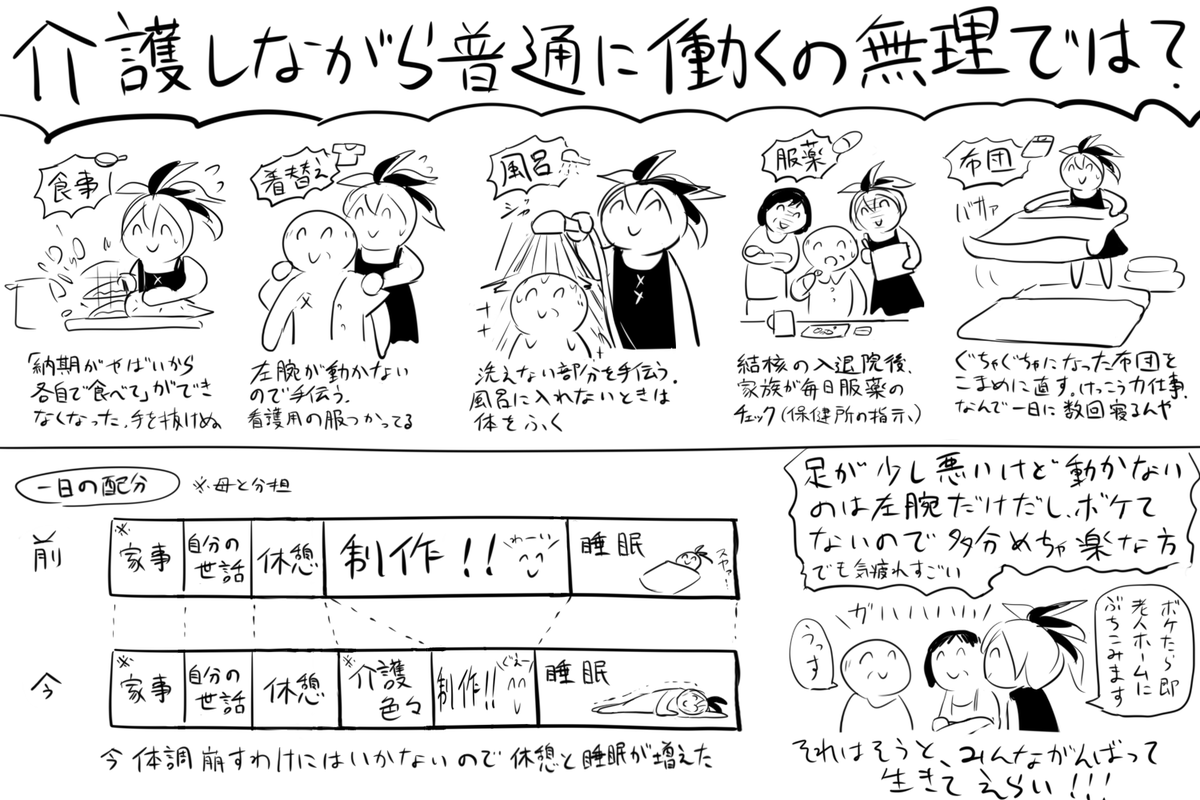 介護しながら普通に働くの無理では?
食事
「納期がやばいから
各自で食べて」ができ
なくなった.手を抜けぬ
着替え
左腕が動かない
ので手伝う.
看護用の服つかってる
風呂
洗えない部分を手伝う.
風呂に入れないときは
体をふく
服薬
結核の入退院後、
家族が毎日服薬の
チェック(保健所の指示.)
布団
バサァ
ぐちゃぐちゃになった布団を
こまめに直す。けっこう力仕事.
なんで一日に数回寝るんや
一日の配分
※母と分担
前
※
家事
自分の
世話
休憩
制作!!
わーい
睡眠
スヤァ…
今
※
家事
自分の
世話
休憩
※
介護
色々
制作!!
ぐえー
睡眠
今体調崩すわけにはいかないので休憩と睡眠が増えた
足が少し悪いけど動かない
のは左腕だけだし、ボケて
ないので多分めちゃ楽な方
でも気疲れすごい
ガ
ボケたら即
老人ホームに
ぶちこみます
うっす
それはそうと、みんながんばって
生きてえらい!!!